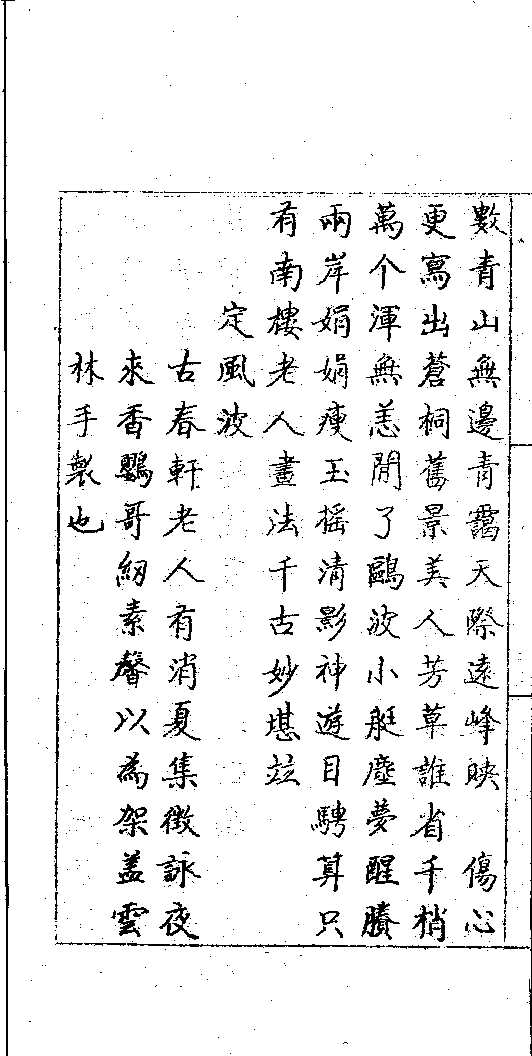 數青山無邊青靄天際遠峰映　傷心
更寫出蒼桐舊景美人芳草誰省千梢
萬个渾無恙閒了鷗波小艇塵夢醒賸
兩岸娟娟瘦玉搖清影神遊目騁算只
有南樓老人畫法千古妙堪竝
定風波
古春軒老人有消夏集徵詠夜
來香鸚哥紉素馨以為架蓋雲
林手製也